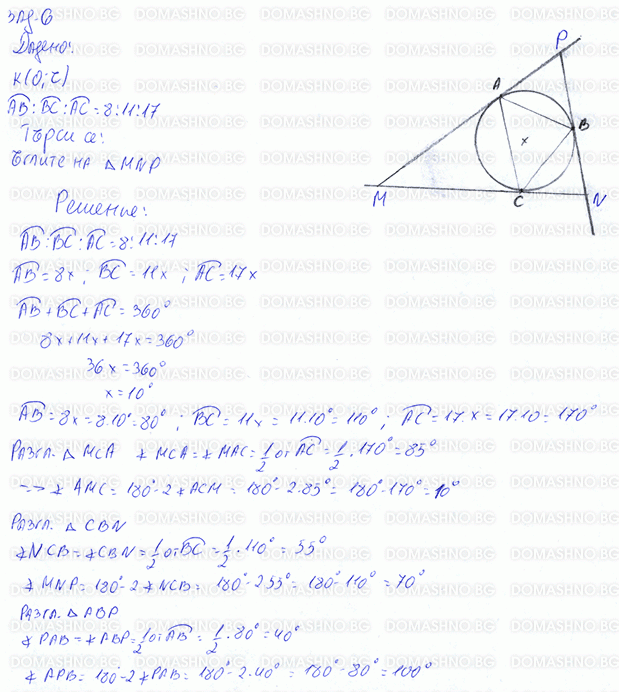 Зад. 6
Дадено:
K(O; r)
AB : BC : AC = 8:11:17
Търси се:
Ъглите на △MNP
P
A
B
x
M
C
N
Решение:
AB : BC : AC = 8:11:17
AB = 8x ; BC = 11x ; AC = 17x
AB + BC + AC = 360°
8x + 11x + 17x = 360°
36x = 360°
x = 10°
AB = 8x = 8.10° = 80° ; BC = 11x = 11.10° = 110° ; AC = 17.x = 17.10 = 170°
Разгл. △MCA ∢MCA = ∢MAC = 1/2 от AC = 1/2 . 170° = 85°
--> ∢AMC = 180° - 2∢ACM = 180° - 2.85° = 180° - 170° = 10°
Разгл. △CBN
∢NCB = ∢CBN = 1/2 от BC = 1/2 . 110° = 55°
∢MNP = 180° - 2∢NCB = 180° - 2.55° = 180° - 110° = 70°
Разгл. △ABP
∢PAB = ∢ABP = 1/2 от AB = 1/2 . 80° = 40°
∢APB = 180° - 2∢PAB = 180° - 2.40° = 180° - 80° = 100°
DOMASHNO.BG